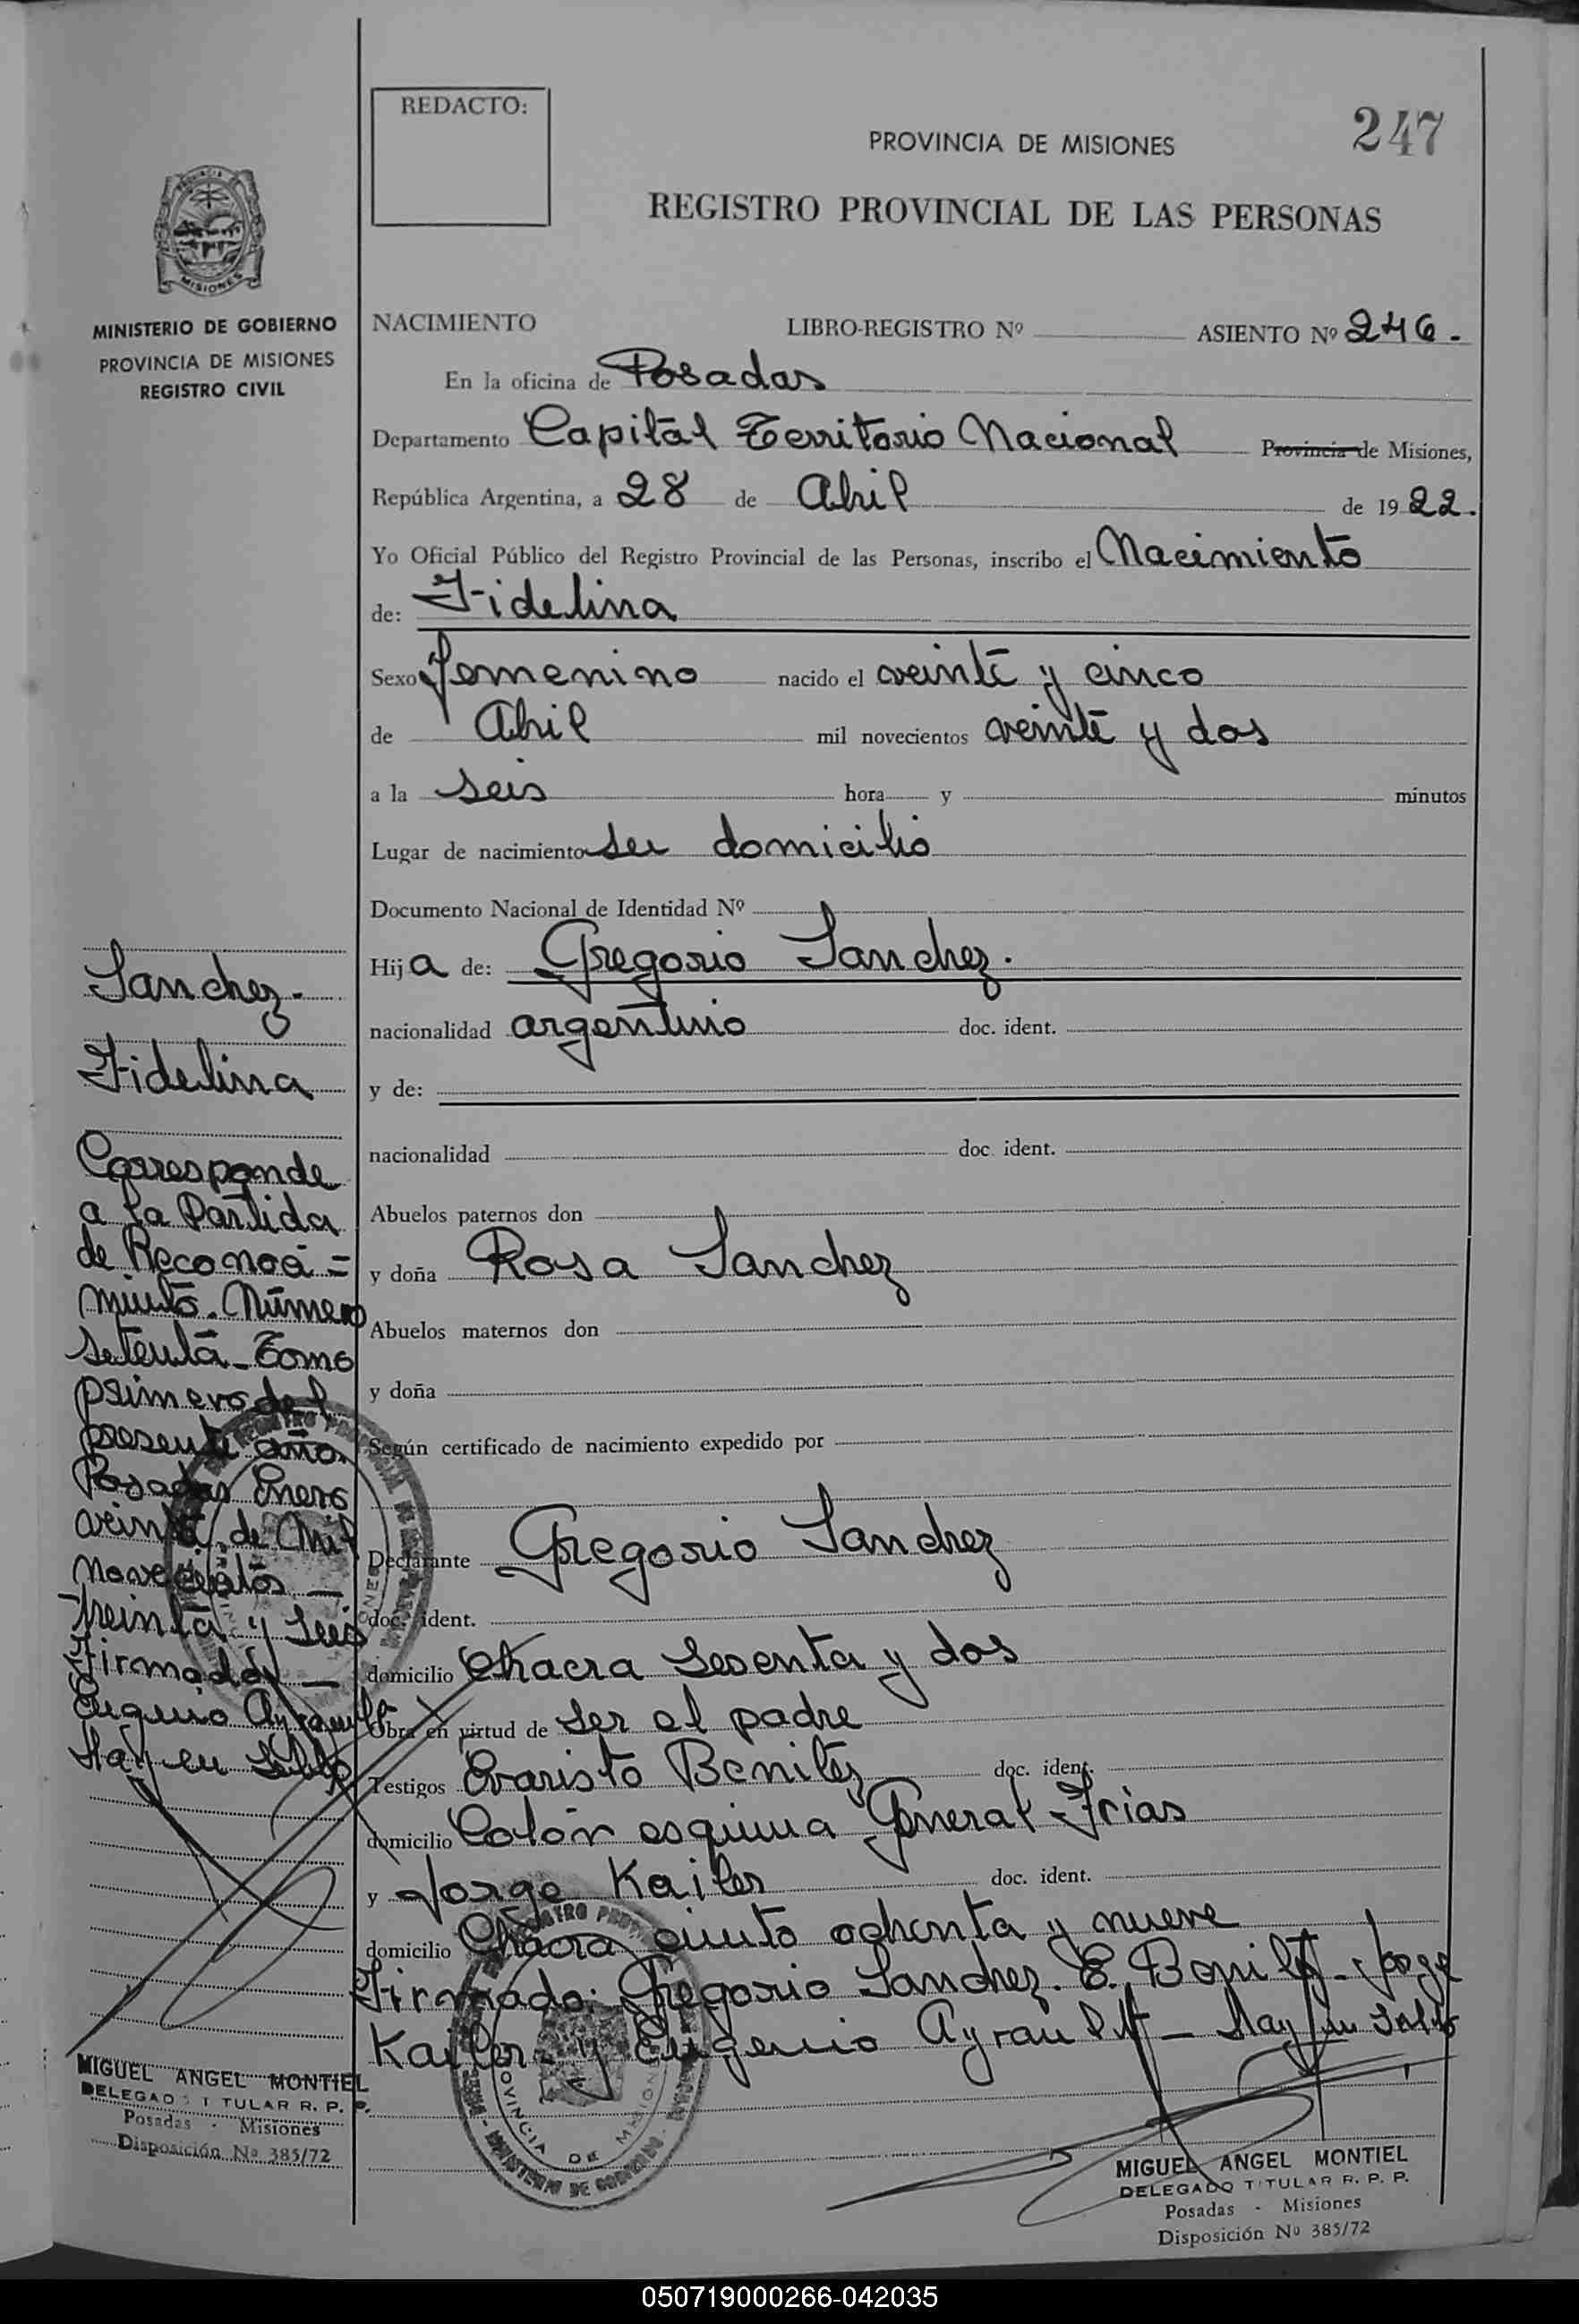 REDACTO:
247
PROVINCIA DE MISIONES
REGISTRO PROVINCIAL DE LAS PERSONAS
MISIONES
MINISTERIO DE GOBIERNO
PROVINCIA DE MISIONES
REGISTRO CIVIL
NACIMIENTO LIBRO-REGISTRO Nº ASIENTO Nº 246.
En la oficina de Posadas
Departamento Capital Territorio Nacional Provincia de Misiones,
República Argentina, a 28 de Abril de 1922.
Yo Oficial Público del Registro Provincial de las Personas, inscribo el Nacimiento
de: Fidelina
Sexo femenino nacido el veinte y cinco
de Abril mil novecientos veinte y dos
a la seis hora y minutos
Lugar de nacimiento su domicilio
Documento Nacional de Identidad Nº
Hija de: Gregorio Sanchez.
nacionalidad argentino doc. ident.
y de:
nacionalidad doc. ident.
Abuelos paternos don
y doña Rosa Sanchez
Abuelos maternos don
y doña
Según certificado de nacimiento expedido por
Declarante Gregorio Sanchez
doc. ident.
domicilio Chacra Sesenta y dos
Obra en virtud de ser el padre
Testigos Evaristo Benitez doc. ident.
domicilio Colón esquina General Frias
y Jorge Kailer doc. ident.
domicilio Chacra ciento ochenta y nueve
Firmado: Gregorio Sanchez. E. Benitez - Jorge
Kailer - y Eugenio Ayrault - Hay un Sello
Sanchez.
Fidelina
Corresponde
a la Partida
de Reconoci=
miento. Número
setenta - Tomo
primero del
presente año.
Posadas Enero
veinte de Mil
Novecientos
treinta y Seis
Firmado
Eugenio Ayrault
Hay un Sello
MIGUEL ANGEL MONTIEL
DELEGADO TITULAR R. P. P.
Posadas - Misiones
Disposición Nº 385/72
MIGUEL ANGEL MONTIEL
DELEGADO TITULAR R. P. P.
Posadas - Misiones
Disposición Nº 385/72
050719000266-042035